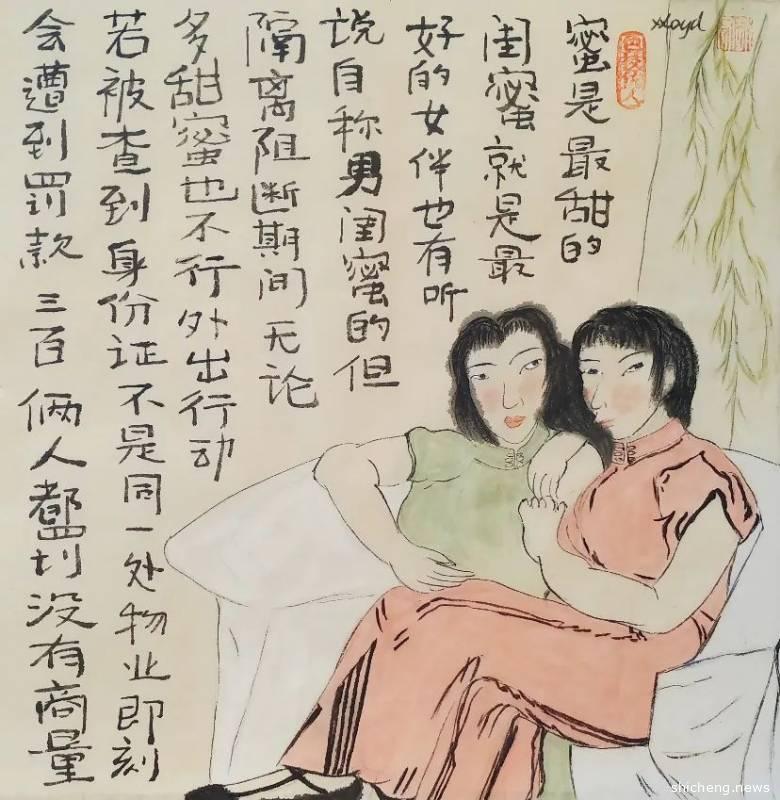 蜜是最甜的
闺蜜就是最
好的女伴也有听
说自称男闺蜜的但
隔离阻断期间无论
多甜蜜也不行外出行动
若被查到身份证不是同一处物业即刻
会遭到罚款三百俩人都罚没有商量
shicheng.news